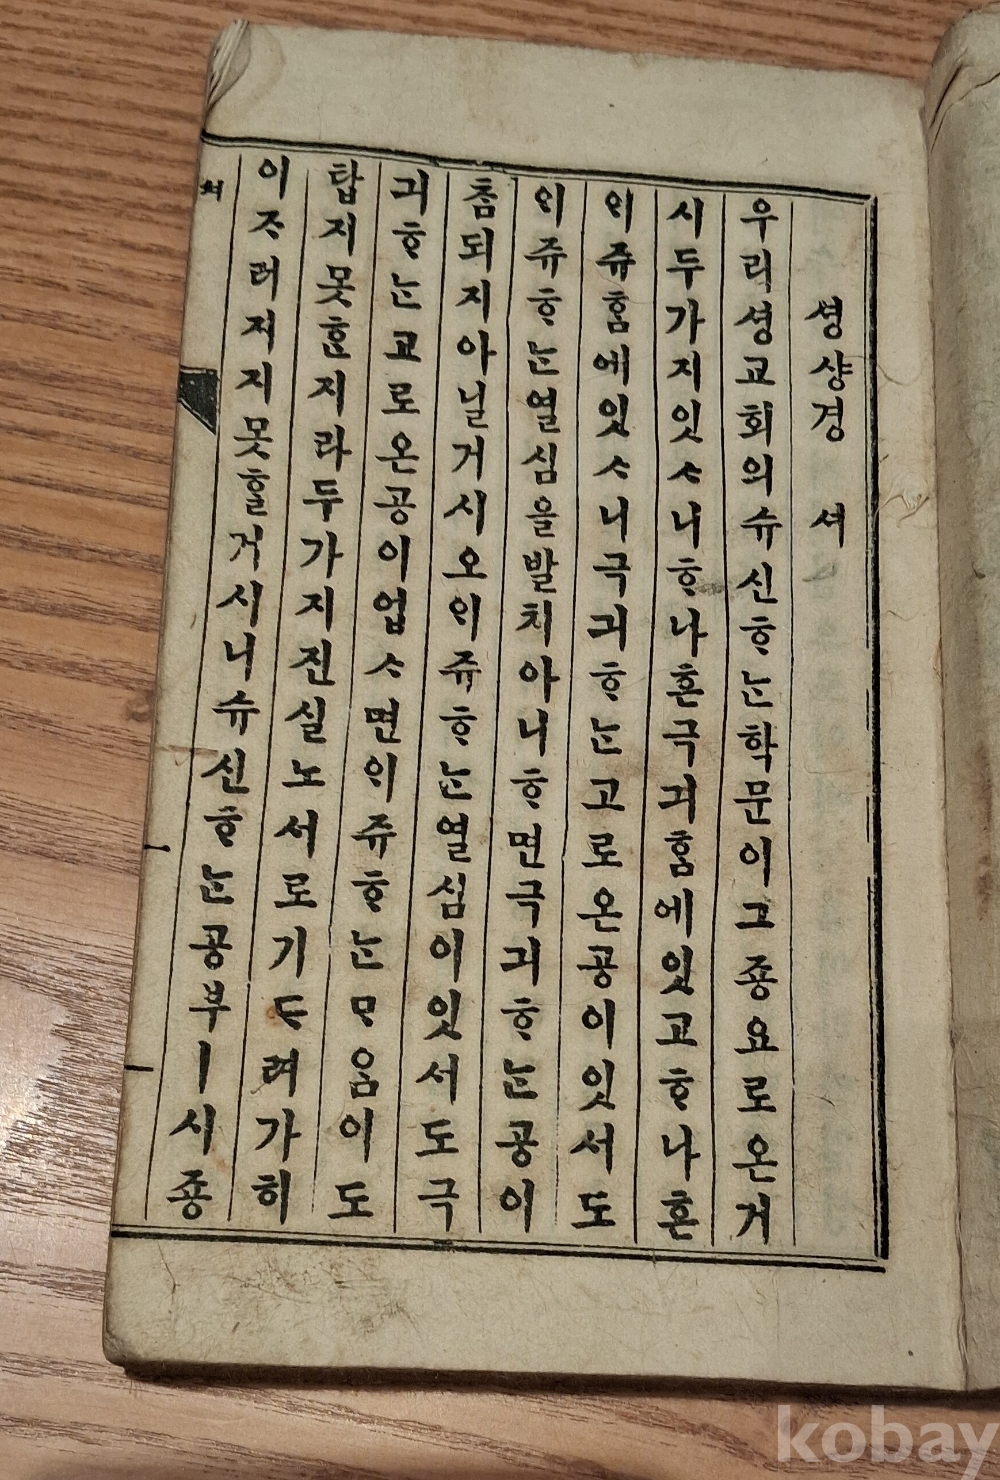 셩샹경 셔
우리셩교회의슈신ᄒᆞᄂᆞᆫ학문이그죵요로온거
시두가지잇ᄉᆞ니ᄒᆞ나흔극긔홈에잇고ᄒᆞ나흔
의쥬홈에잇ᄉᆞ니극긔ᄒᆞᄂᆞᆫ고로온공이잇서도
의쥬ᄒᆞᄂᆞᆫ열심을발치아니ᄒᆞ면극긔ᄒᆞᄂᆞᆫ공이
춤되지아닐거시오의쥬ᄒᆞᄂᆞᆫ열심이잇서도극
긔ᄒᆞᄂᆞᆫ교로온공이업ᄉᆞ면의쥬ᄒᆞᄂᆞᆫᄆᆞᄋᆞᆷ이도
탑지못ᄒᆞᆫ지라두가지진실노서로기ᄃᆞ려가히
이즈러지지못ᄒᆞᆯ거시니슈신ᄒᆞᄂᆞᆫ공부ㅣ시죵
셔
kobay